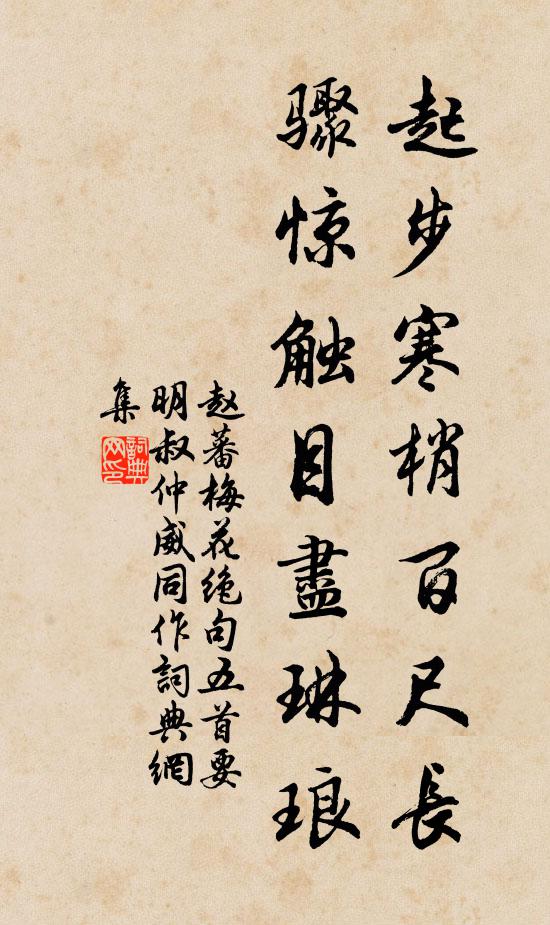 起步寒梢百尺長
骤惊触目盡琳琅
赵蕃梅花绝句五首要
明叔仲威同作詞典網
集
詞典
网印